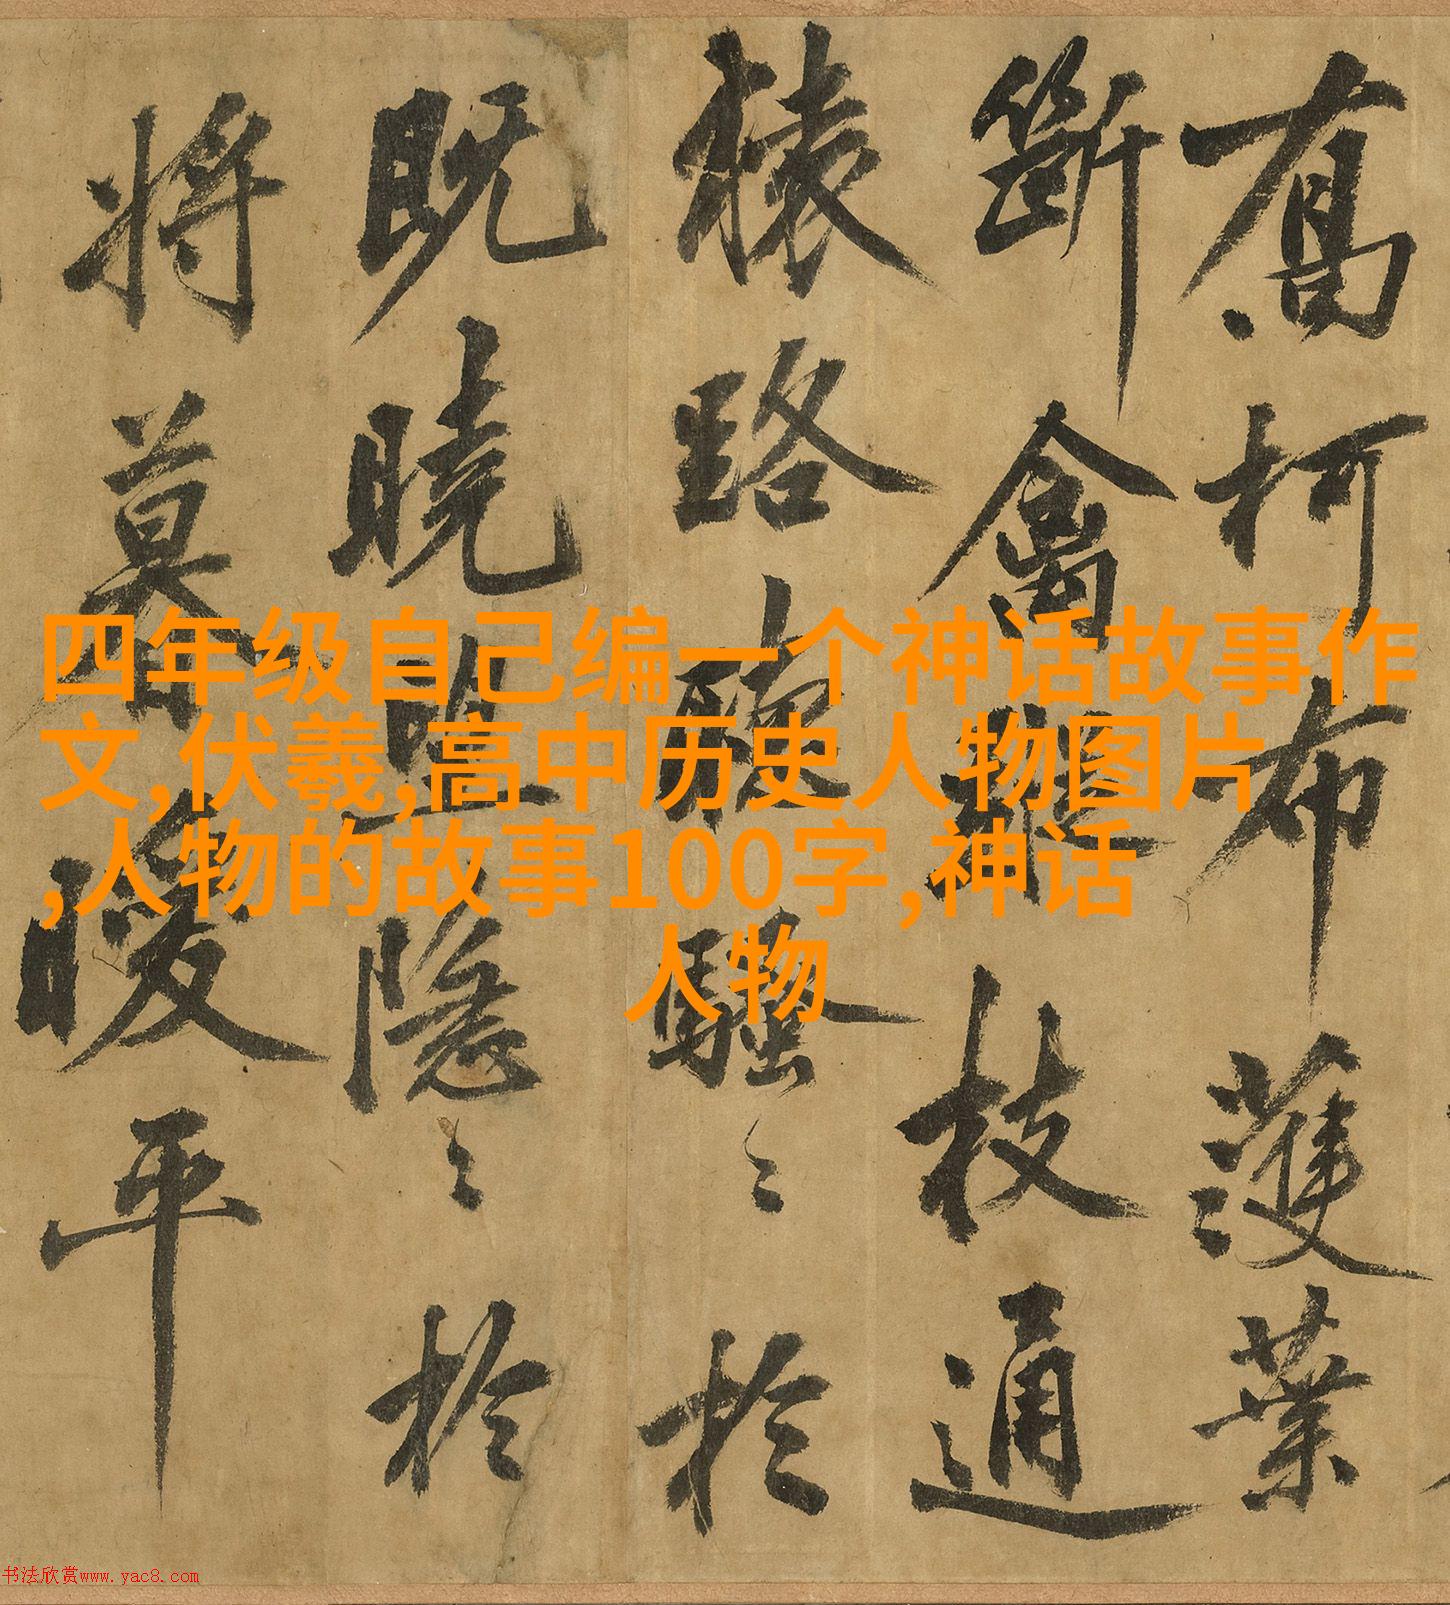 柯布護葉
斷禽枝通
猿路騷々於
既曉隱々於
將暮曖平
四年级自己编一个神话故事作
文,伏羲,高中历史人物图片
,人物的故事100字,神话
人物
书法欣赏www.yac8.com